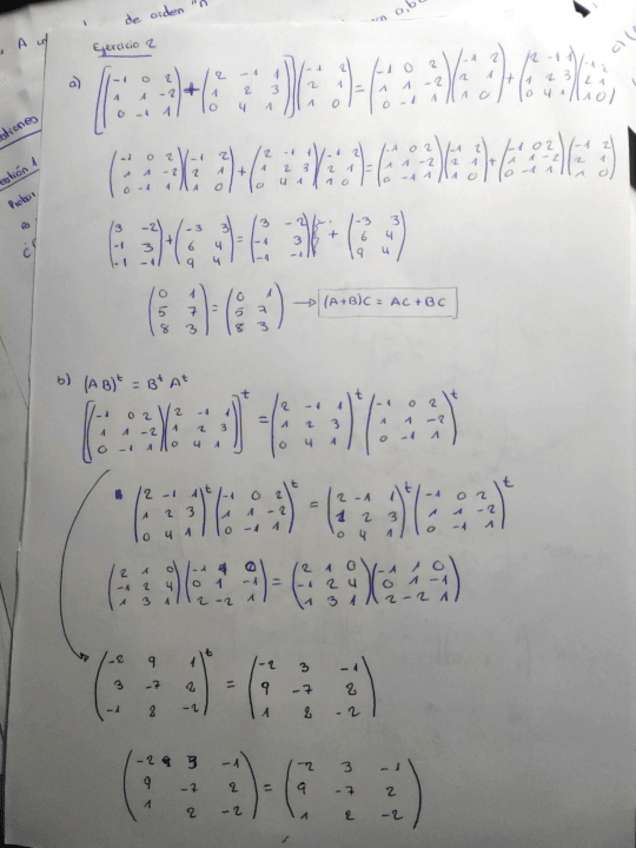 de orden "n
Ejercicio 2
a) [(-1 0 2; 1 1 -2; 0 -1 1) + (2 -1 1; 1 2 3; 0 4 1)] (-1 2; 2 1; 1 0) = (-1 0 2; 1 1 -2; 0 -1 1) (-1 2; 2 1; 1 0) + (2 -1 1; 1 2 3; 0 4 1) (-1 2; 2 1; 1 0)
(-1 0 2; 1 1 -2; 0 -1 1) (-1 2; 2 1; 1 0) + (2 -1 1; 1 2 3; 0 4 1) (-1 2; 2 1; 1 0) = (-1 0 2; 1 1 -2; 0 -1 1) (-1 2; 2 1; 1 0) + (-1 0 2; 1 1 -2; 0 -1 1) (-1 2; 2 1; 1 0)
(3 -2; -1 3; -1 -1) + (-3 3; 6 4; 9 4) = (3 -2; -1 3; -1 -1) + (-3 3; 6 4; 9 4)
(0 1; 5 7; 8 3) = (0 1; 5 7; 8 3) → (A+B)C = AC + BC
b) (AB)^t = B^t A^t
[(-1 0 2; 1 1 -2; 0 -1 1) (2 -1 1; 1 2 3; 0 4 1)]^t = (2 -1 1; 1 2 3; 0 4 1)^t (-1 0 2; 1 1 -2; 0 -1 1)^t
(2 -1 1; 1 2 3; 0 4 1)^t (-1 0 2; 1 1 -2; 0 -1 1)^t = (2 -1 1; 1 2 3; 0 4 1)^t (-1 0 2; 1 1 -2; 0 -1 1)^t
(2 1 0; -1 2 4; 1 3 1) (-1 1 0; 0 1 -1; 2 -2 1) = (2 1 0; -1 2 4; 1 3 1) (-1 1 0; 0 1 -1; 2 -2 1)
(-2 9 1; 3 -7 2; -1 2 -2)^t = (-2 3 -1; 9 -7 2; 1 2 -2)
(-2 3 -1; 9 -7 2; 1 2 -2) = (-2 3 -1; 9 -7 2; 1 2 -2)